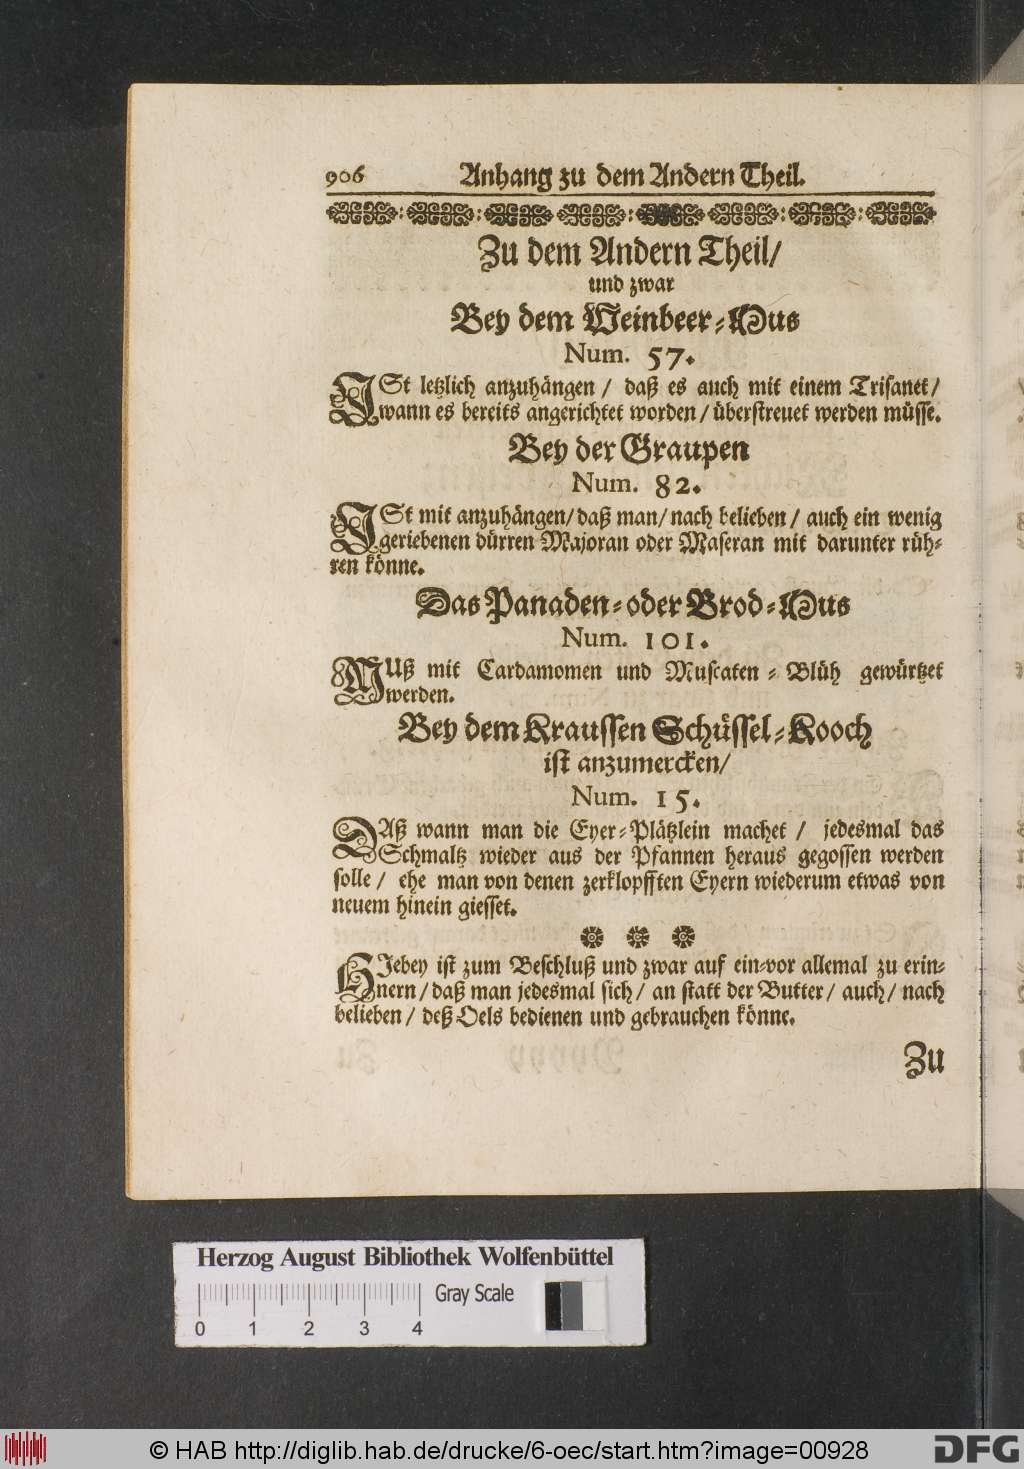 906 Anhang zu dem Andern Theil.
Zu dem Andern Theil/
und zwar
Bey dem Weinbeer-Mus
Num. 57.
ISt letzlich anzuhängen / daß es auch mit einem Trisanet/
wann es bereits angerichtet worden / überstreuet werden müsse.
Bey der Graupen
Num. 82.
ISt mit anzuhängen/ daß man/ nach belieben / auch ein wenig
geriebenen dürren Majoran oder Maseran mit darunter rüh-
ren könne.
Das Panaden-oder Brod-Mus
Num. 101.
MUß mit Cardamomen und Muscaten-Blüh gewürtzet
werden.
Bey dem Kraussen Schüssel-Kooch
ist anzumercken/
Num. 15.
DAß wann man die Eyer-Plätzlein machet / jedesmal das
Schmaltz wieder aus der Pfannen heraus gegossen werden
solle / ehe man von denen zerklopfften Eyern wiederum etwas von
neuem hinein giesset.
HIebey ist zum Beschluß und zwar auf ein-vor allemal zu erin-
nern / daß man jedesmal sich / an statt der Butter / auch / nach
belieben / deß Oels bedienen und gebrauchen könne.
Zu
Herzog August Bibliothek Wolfenbüttel
Gray Scale
0 1 2 3 4
© HAB http://diglib.hab.de/drucke/6-oec/start.htm?image=00928
DFG